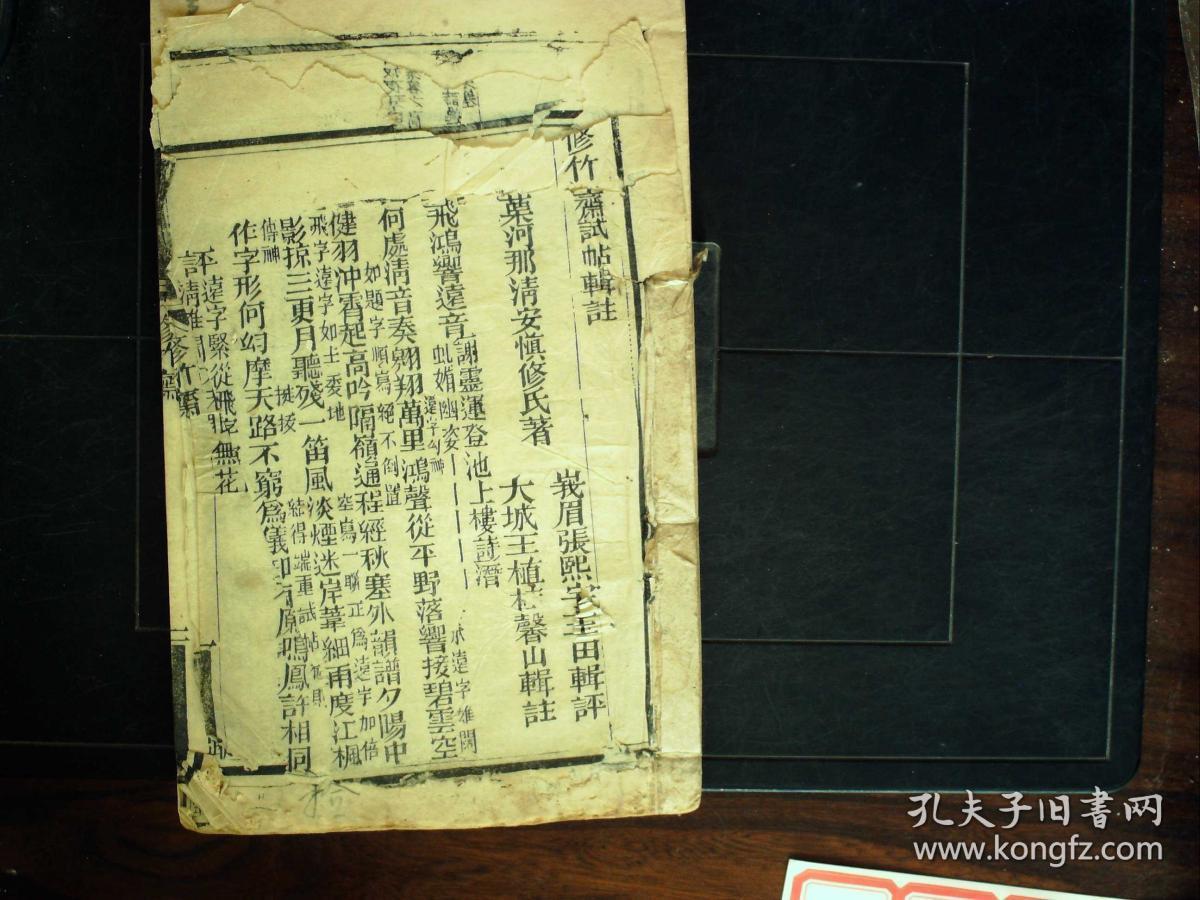 修竹齋試帖輯註
葉河那清安慎修氏著
峩眉張熙宇玉田輯評
大城王植桂馨山輯註
飛鴻響遠音
謝靈運登池上樓詩潛
虬媚幽姿
承遠字雄闊
何處清音奏翱翔萬里鴻聲從平野落響接碧雲空
如題字順寫絕不倒置
空寫一聯正為遠字加倍
健羽沖霄起高吟隔嶺通程經秋塞外韻譜夕陽中
飛字遠字如土委地
影掠三更月聽殘一笛風淡煙迷岸葦細雨度江楓
傳神
作字形何幻摩天路不窮為儀
鳴鳳許相同
評遠字緊從飛
無花
修竹齋
孔夫子旧書网
www.kongfz.com